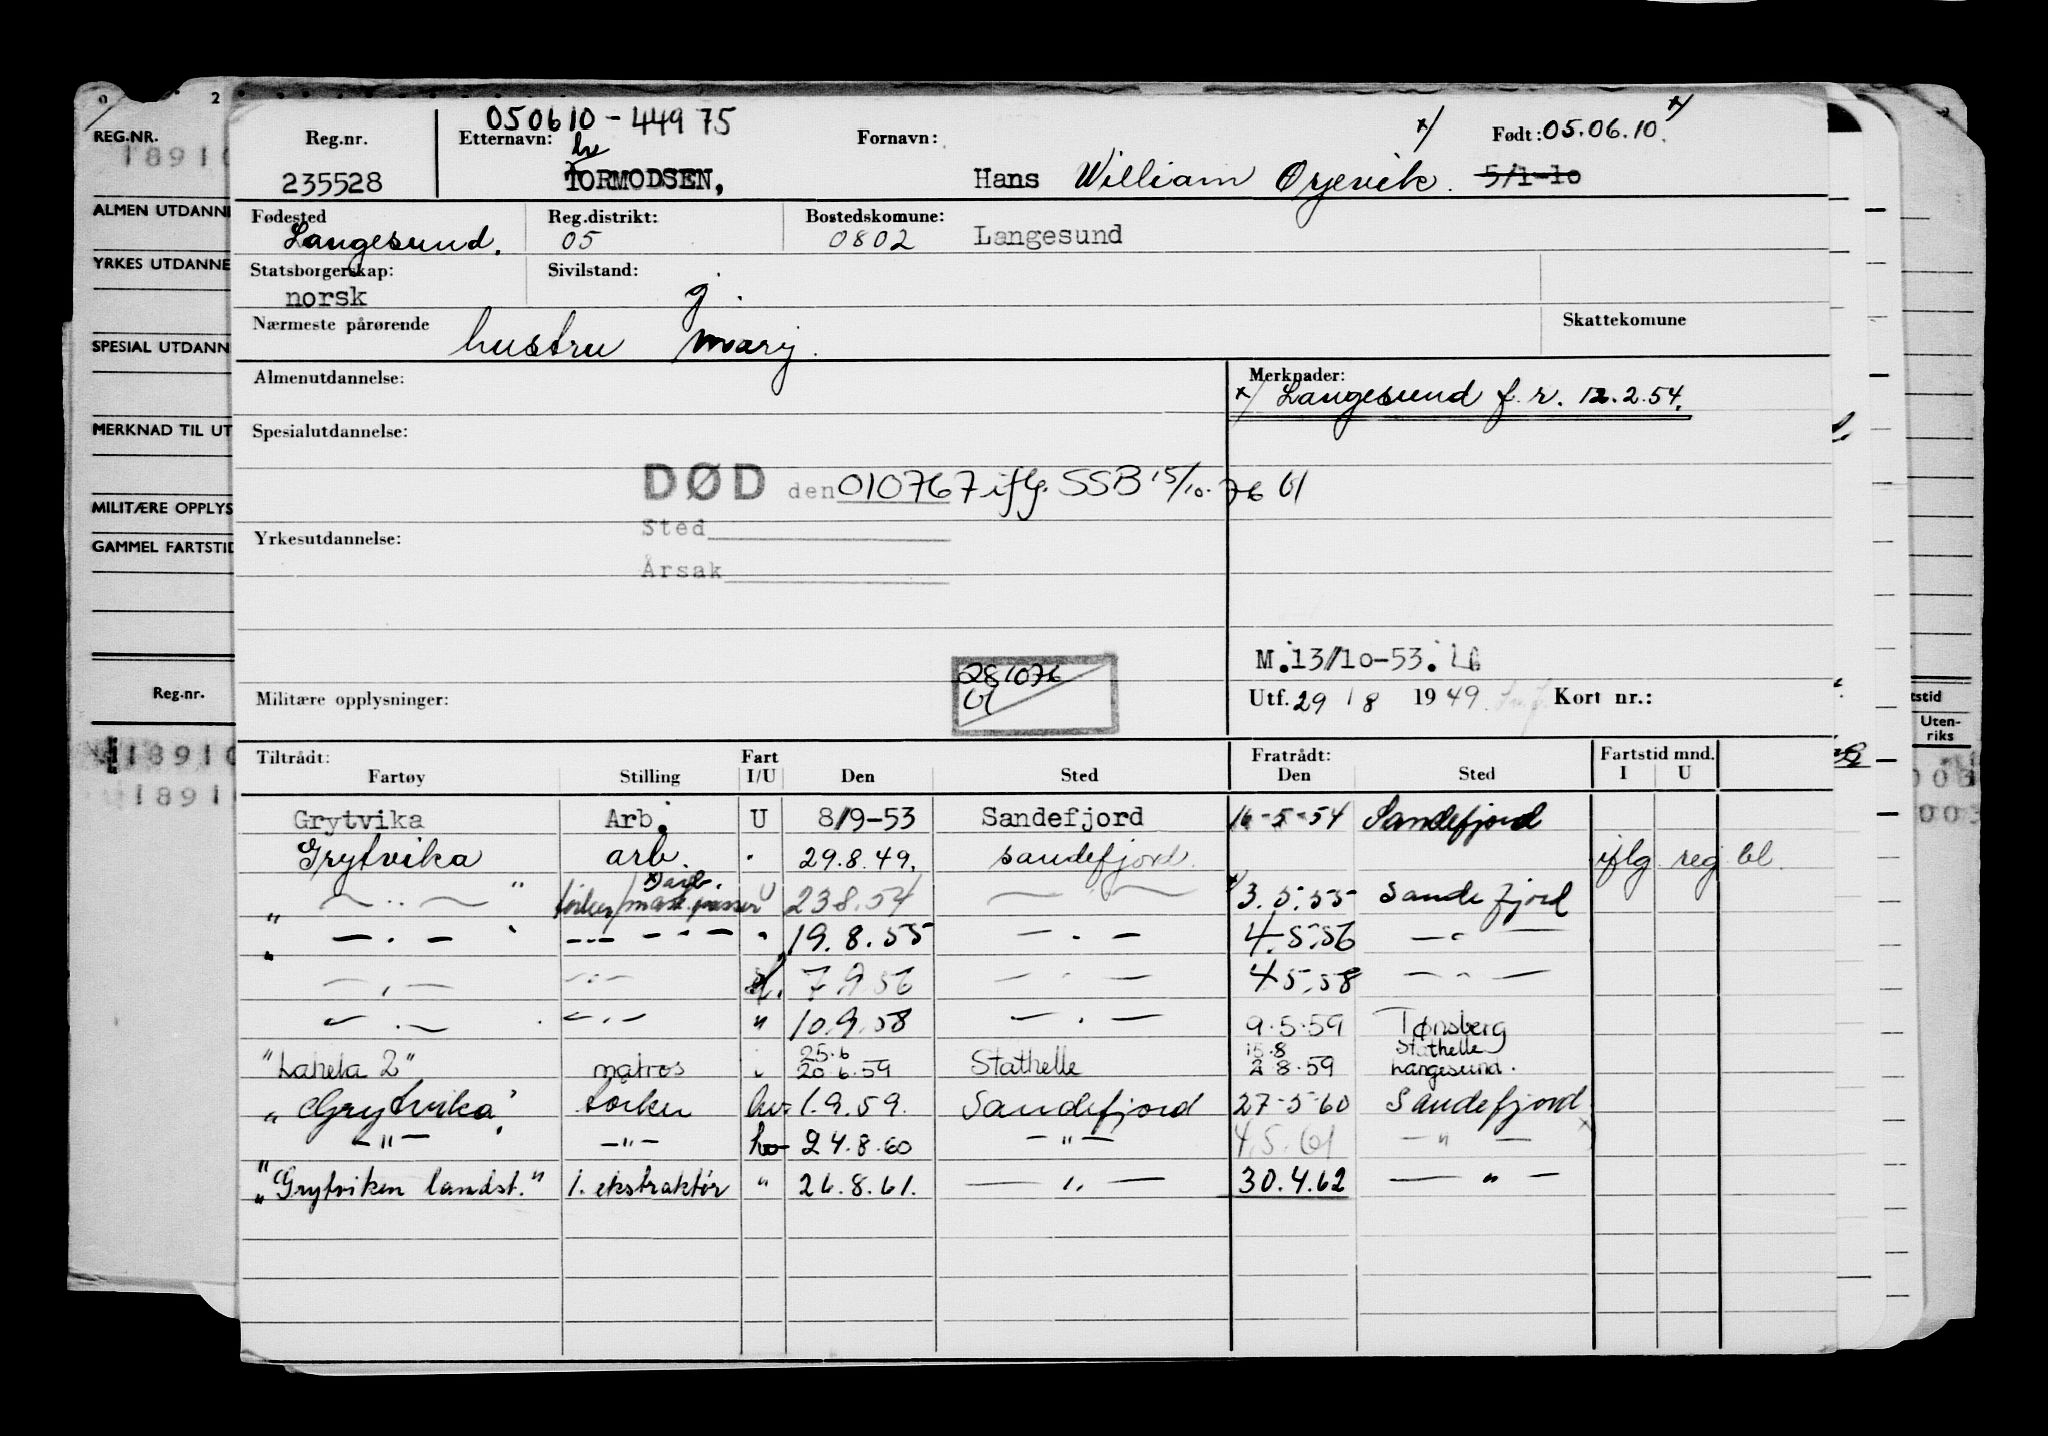 REG.NR.
18910
ALMEN UTDANN
YRKES UTDANNE
SPESIAL UTDANN
MERKNAD TIL UT
MILITÆRE OPPLYS
GAMMEL FARTSTID
Reg.nr.
18910
1891
050610-44975
Reg.nr. Etternavn: Fornavn: x/ Født: 05.06.10. x/
235528 TORMODSEN, Hans William Orjevik. 5/1-10
Fødested Reg.distrikt: Bostedskomune:
Langesund. 05 0802 Langesund
Statsborgerskap: Sivilstand:
norsk g.
Nærmeste pårørende hustru Mary. Skattekomune
Almenutdannelse: Merknader:
x/ Langesund f.r. 12.2.54.
Spesialutdannelse:
DØD den 010767 iflg. SSB 15/10-76
Sted
Yrkesutdannelse:
Årsak
M.13/10-53.
281076
Militære opplysninger: Utf. 29/8 1949. Kort nr.:
Tiltrådt: Fart Fratrådt: Fartstid mnd.
Fartøy Stilling I/U Den Sted Den Sted I U
Grytvika Arb. U 8/9-53 Sandefjord 16-5-54 Sandefjord
Grytvika arb. " 29.8.49. Sandefjord. iflg reg bl.
" -"- " x) arb. U 23 8.54 -"- x/ 3.5.55 Sandefjord
" -"- " -"- -"- " 19.8.55 -"- 4.5.56 -"-
-"- -"- 7.9.56 -"- 4.5.58 -"-
-"- -"- " 10.9.58 -"- 9.5.59 Tønsberg
25.6 15.8 Stathelle
"Lahela 2" matros " 20.6.59 Stathelle 2 8.59 Langesund.
"Grytvika" tørker hv- 1.9.59. Sandefjord 27-5-60 Sandefjord
-"- -"- hv- 24.8.60 -"- 4.5.61 -"-
"Grytviken landst." 1. ekstraktør " 26.8.61. -"- 30.4.62 -"-
tstid
Uten-
riks
003